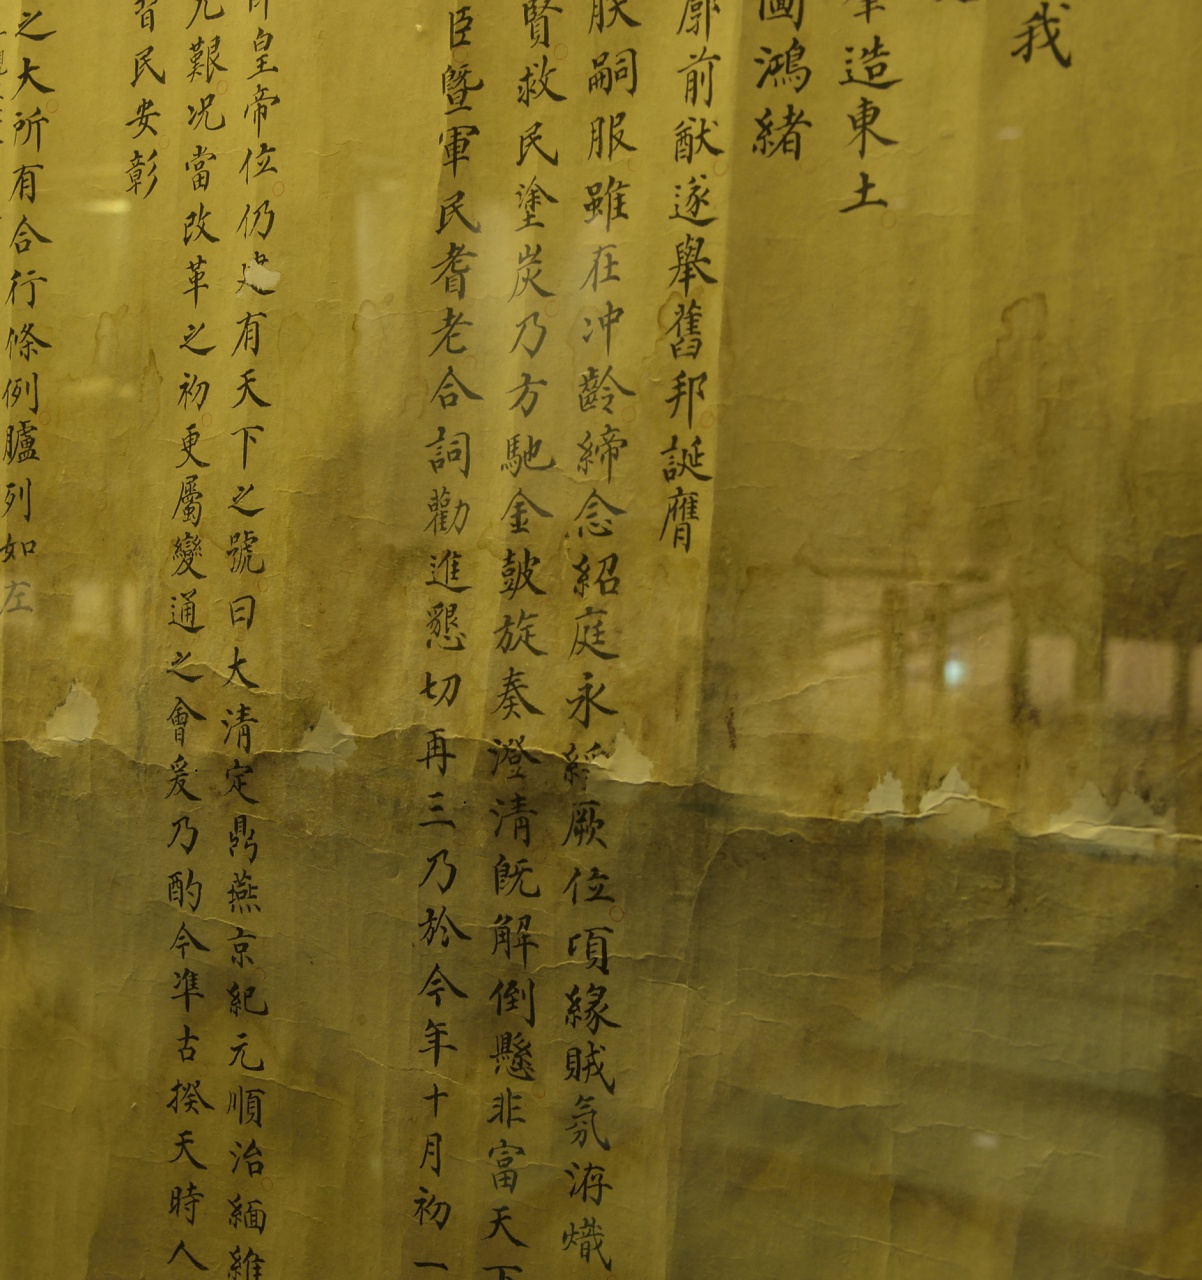 我
造東土
圖鴻緒
廓前猷遂舉舊邦誕膺
朕嗣服雖在冲齡締念紹庭永綏厥位頃緣賊氛洊熾
賢救民塗炭乃方馳金鼓旋奏澄清旣解倒懸非富天下
臣曁軍民耆老合詞勸進懇切再三乃於今年十月初一
皇帝位仍建有天下之號曰大清定鼎燕京紀元順治緬維
艱况當改革之初更屬變通之會爰乃酌今凖古揆天時人
習民安彰
之大所有合行條例臚列如左